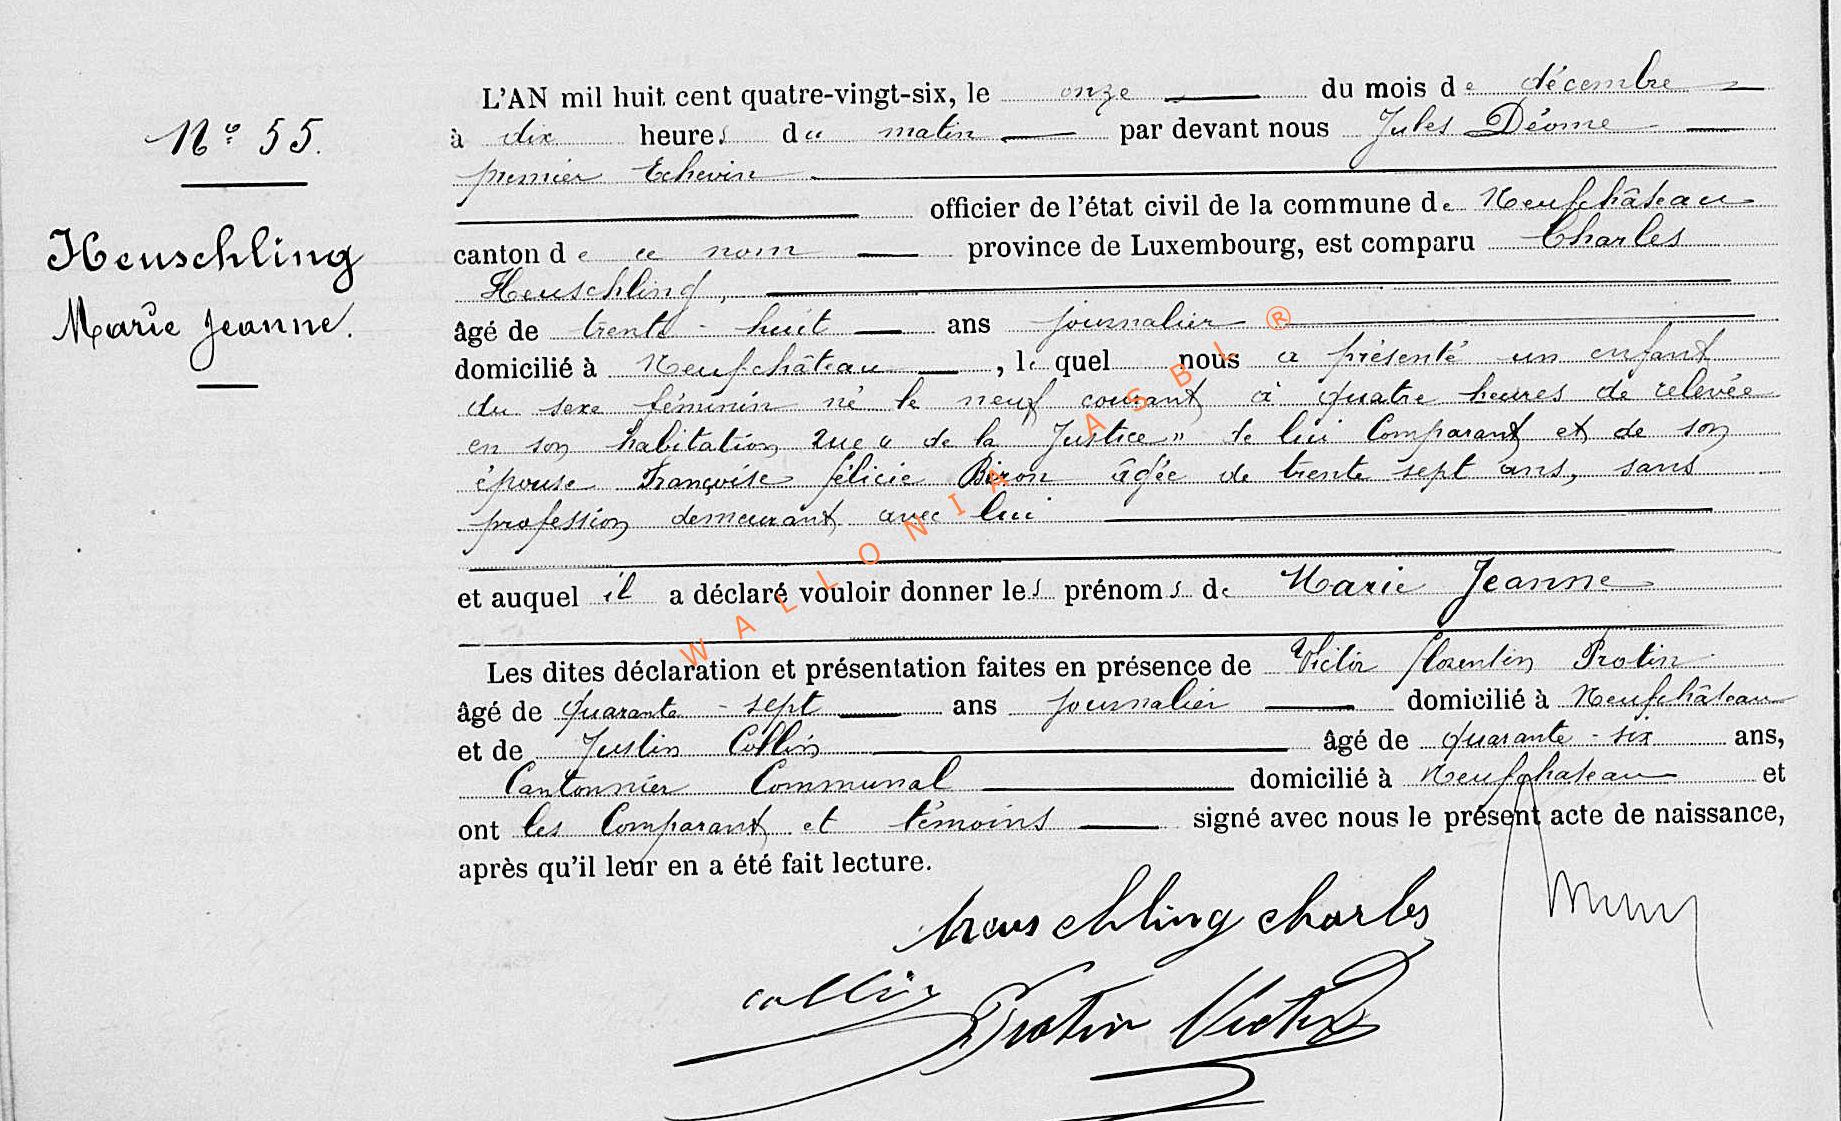 N° 55.
Heuschling
Marie Jeanne.
L'AN mil huit cent quatre-vingt-six, le onze du mois de décembre
à dix heures du matin par devant nous Jules Déome
premier Echevin
officier de l'état civil de la commune de Neufchâteau
canton de ce nom province de Luxembourg, est comparu Charles
Heuschling,
âgé de trente-huit ans journalier
domicilié à Neufchâteau, lequel nous a présenté un enfant
du sexe féminin né le neuf courant à quatre heures de relevée
en son habitation rue "de la Justice" de lui Comparant et de son
épouse Françoise félicie Biron âgée de trente sept ans, sans
profession demeurant avec lui
et auquel il a déclaré vouloir donner les prénoms de Marie Jeanne
Les dites déclaration et présentation faites en présence de Victor florentin Protin
âgé de quarante-sept ans journalier domicilié à Neufchâteau
et de Justin Collin âgé de quarante-six ans,
Cantonnier Communal domicilié à Neufchateau et
ont les Comparant et témoins signé avec nous le présent acte de naissance,
après qu'il leur en a été fait lecture.
heuschling charles
collin
Protin Victor
WALLONIA ASBL ®